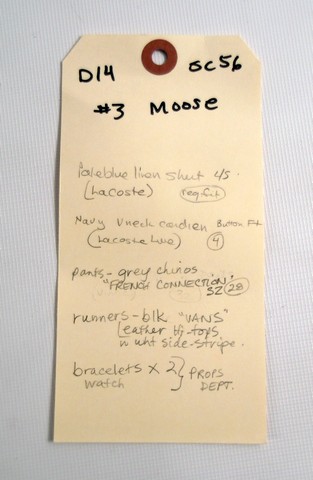 D14 SC56
#3 Moose
Paleblue linen shirt L/S.
(Lacoste) reg.fit
Navy Vneck cardien Button Ft
(Lacoste Live) 4
pants- grey chinos
"FRENCH CONNECTION"
SZ 28
runners- blk "VANS"
leather hi-tops
w wht side-stripe.
bracelets x 2 } PROPS
watch DEPT.